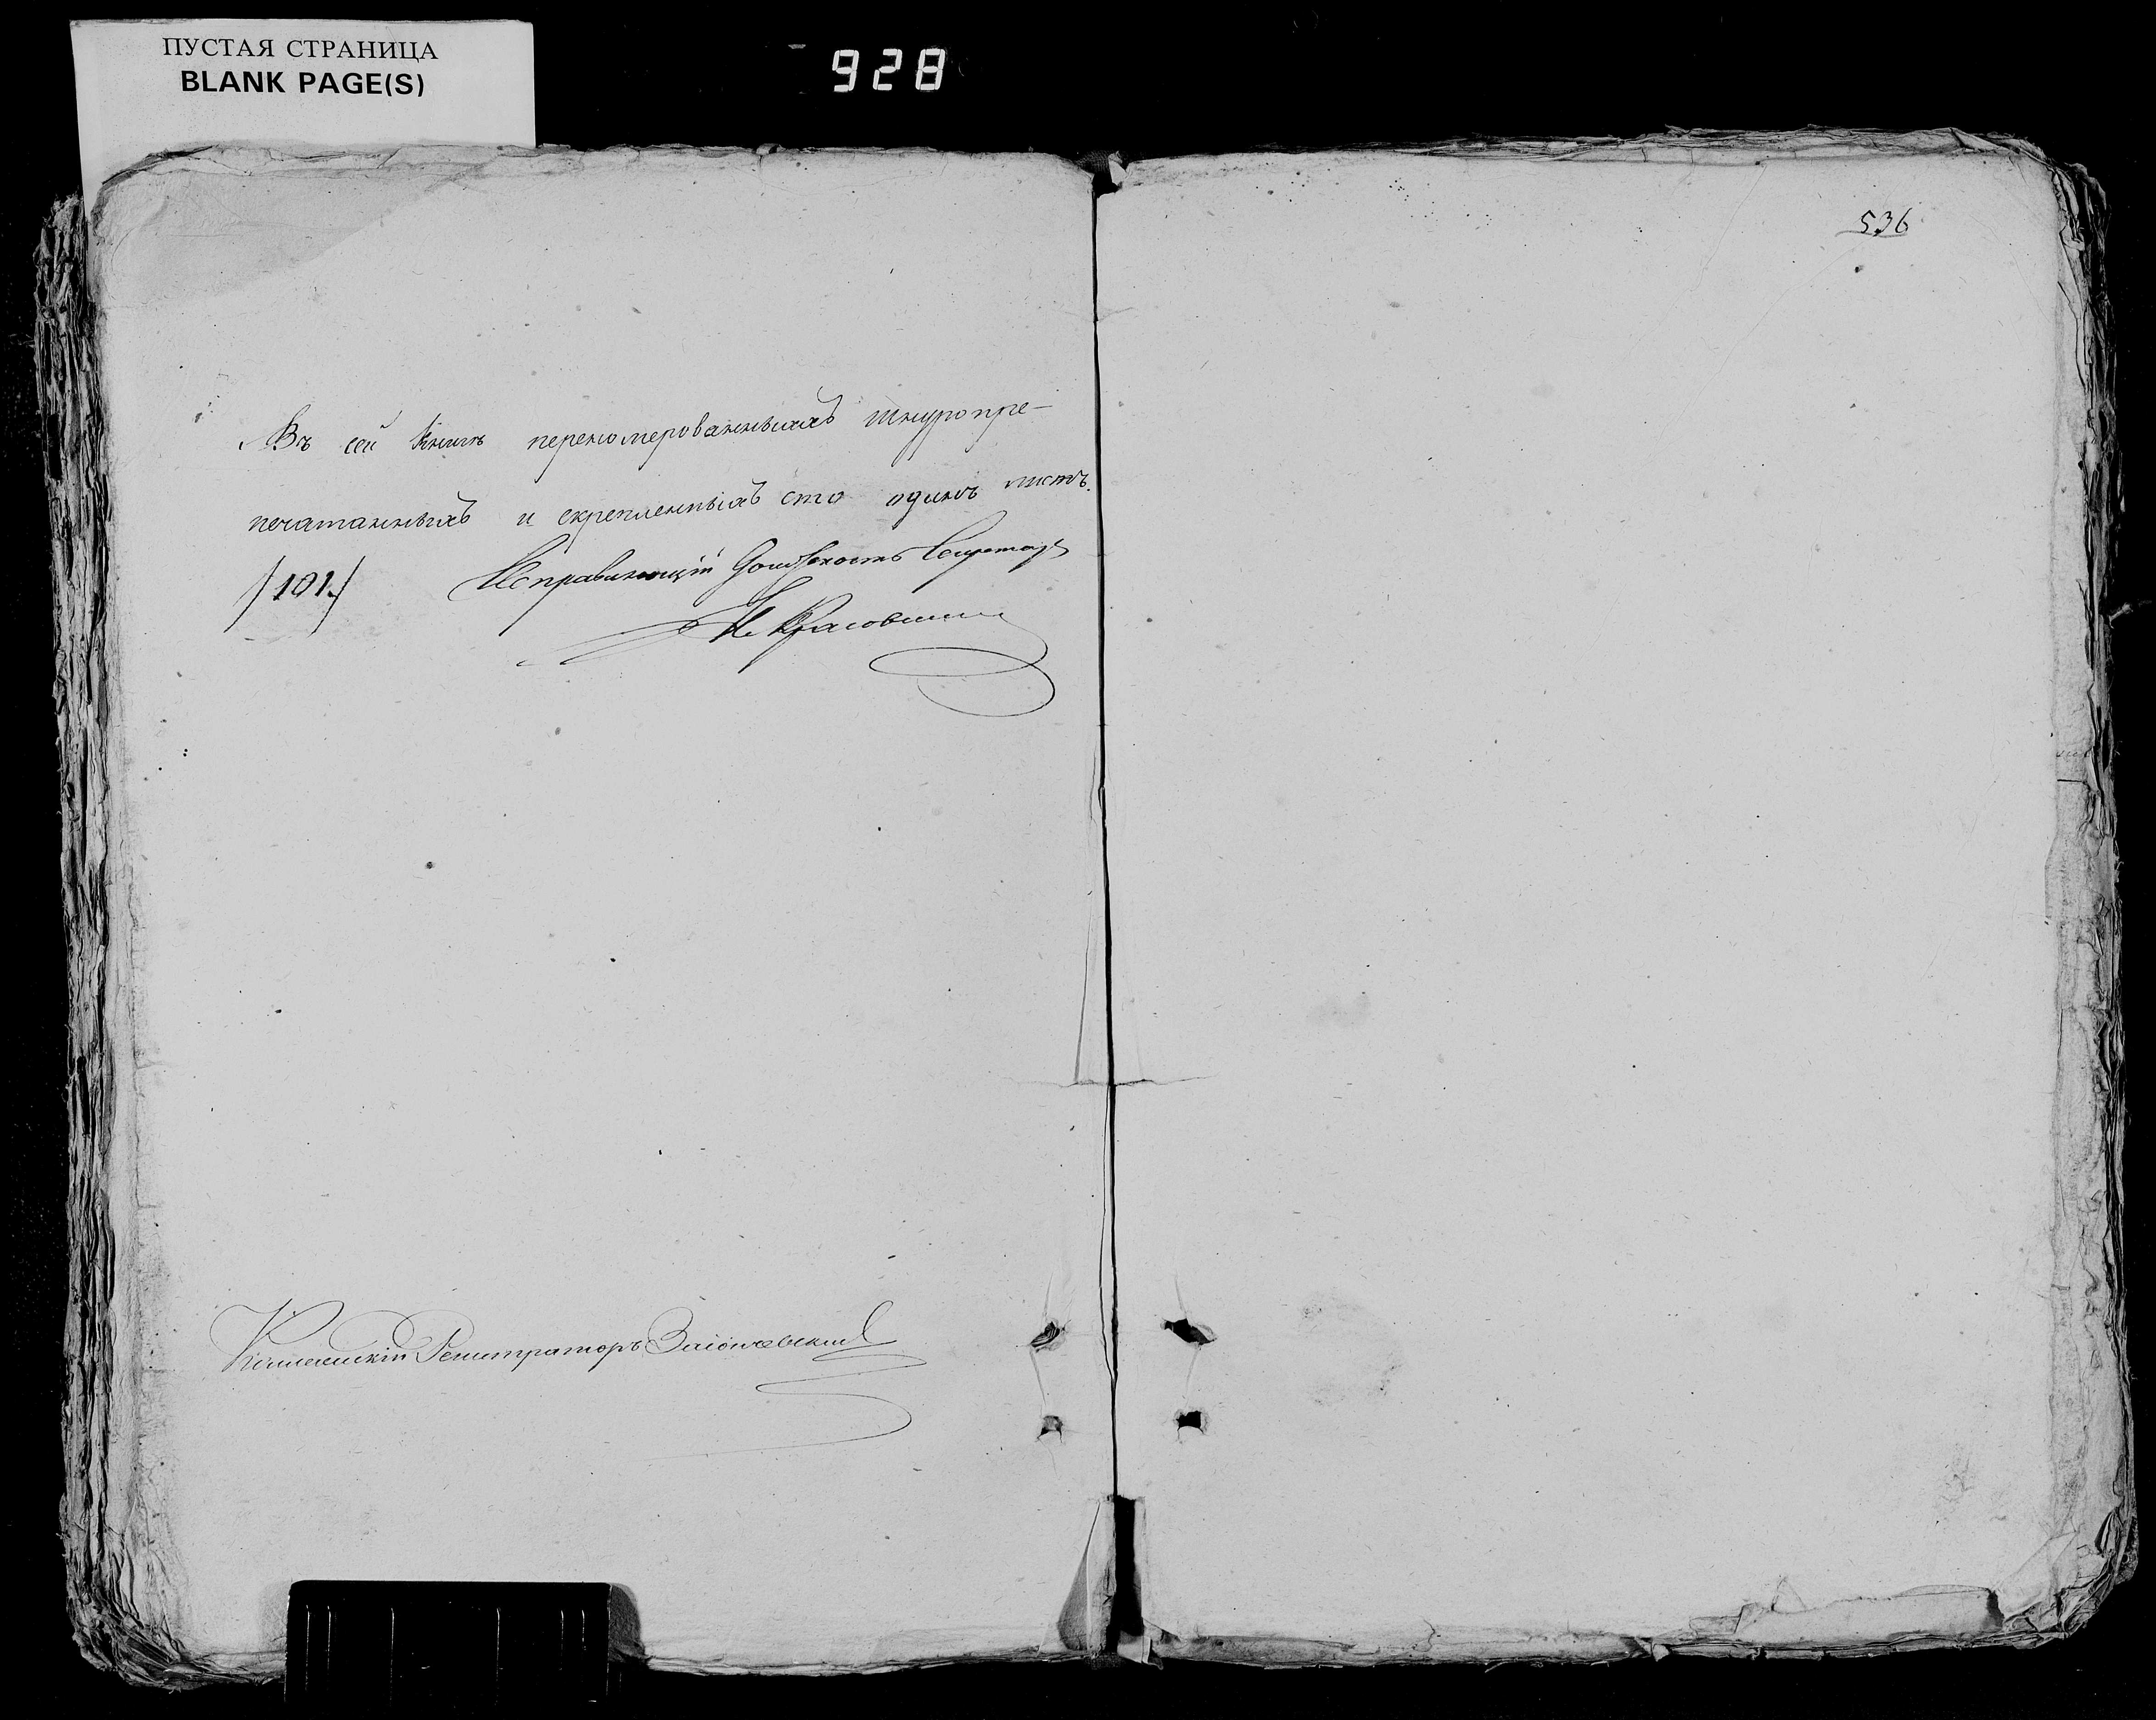 ПУСТАЯ СТРАНИЦА
BLANK PAGE(S)
928
536
Въ сей книгѣ переномерованныхъ шнуропре-
печатанныхъ и скрепленныхъ сто одинъ листъ.
/101./ Исправляющій Должность Секретаря
Красовскій
Регистраторъ